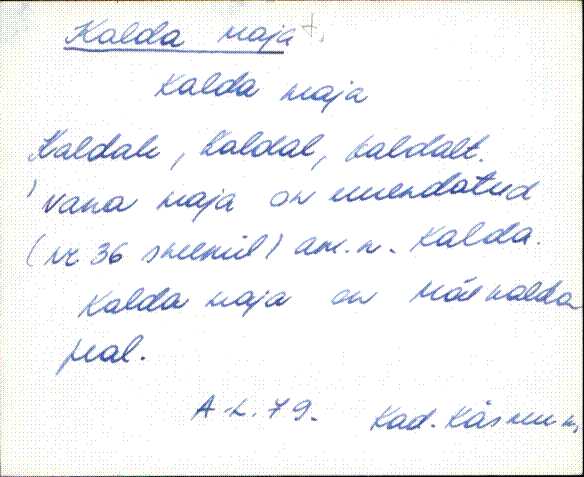 Kalda maja +.
Kalda maja
Kaldale, kaldal, kaldalt.
Vana maja on uuendatud
(nr. 36 skeemil) am. n. Kalda.
Kalda maja on Mäe kalda
peal.
A.L. 79. Kad. Käsmu k.